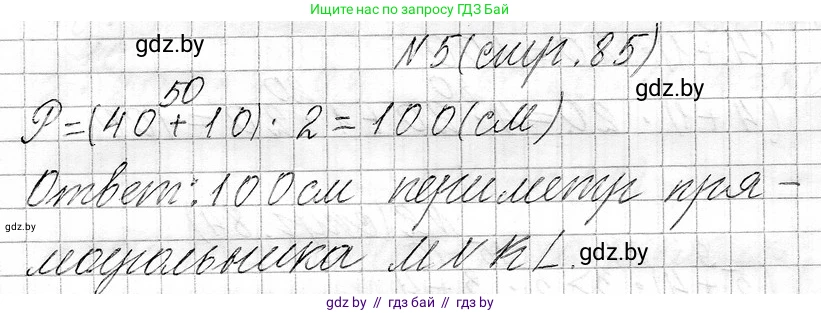 Ищите нас по запросу ГДЗ Бай
gdz.by
N5(стр.85)
gdz.by
50
P=(40+10)·2=100(см)
Ответ: 100см периметр пря-
gdz.by
моугольника MNKL.
gdz.by
gdz.by // гдз бай // гдз by